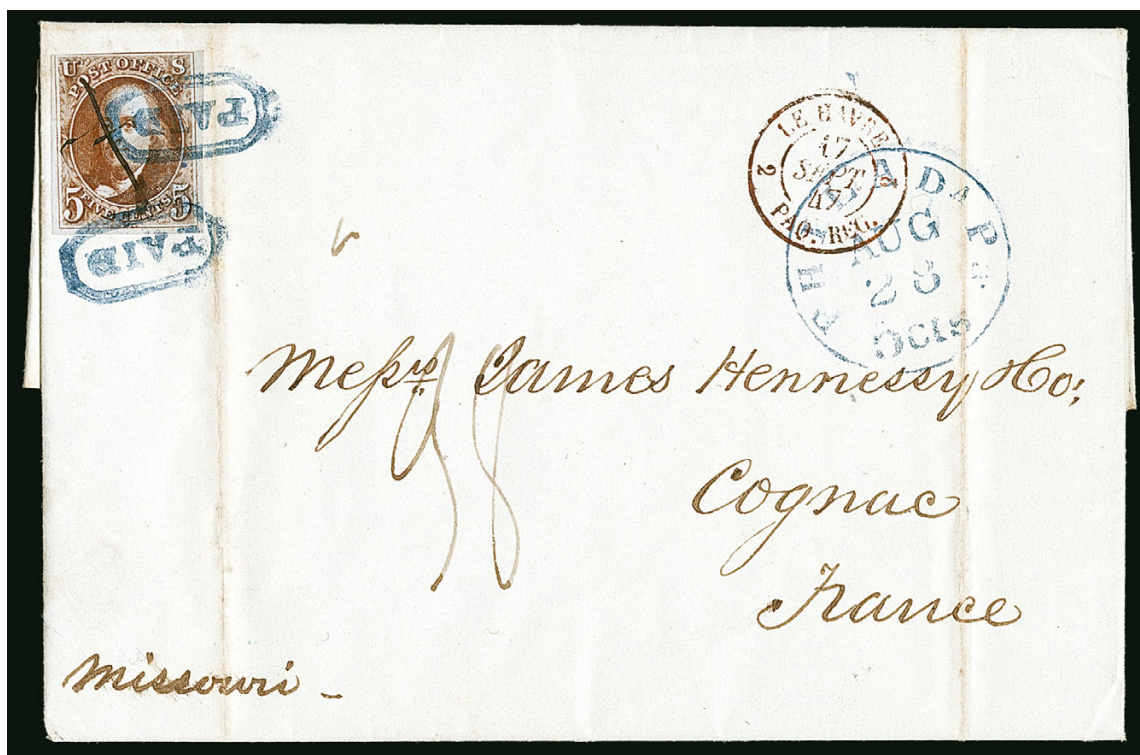 U S
POST OFFICE
5 FIVE CENTS 5
PAID
PAID
LE HAVRE
2 2
17
SEPT.
47
PAQ. REG.
PHILADA Pa.
AUG
28
5cts
Messrs James Hennessy & Co;
38
Cognac
France
Missouri -